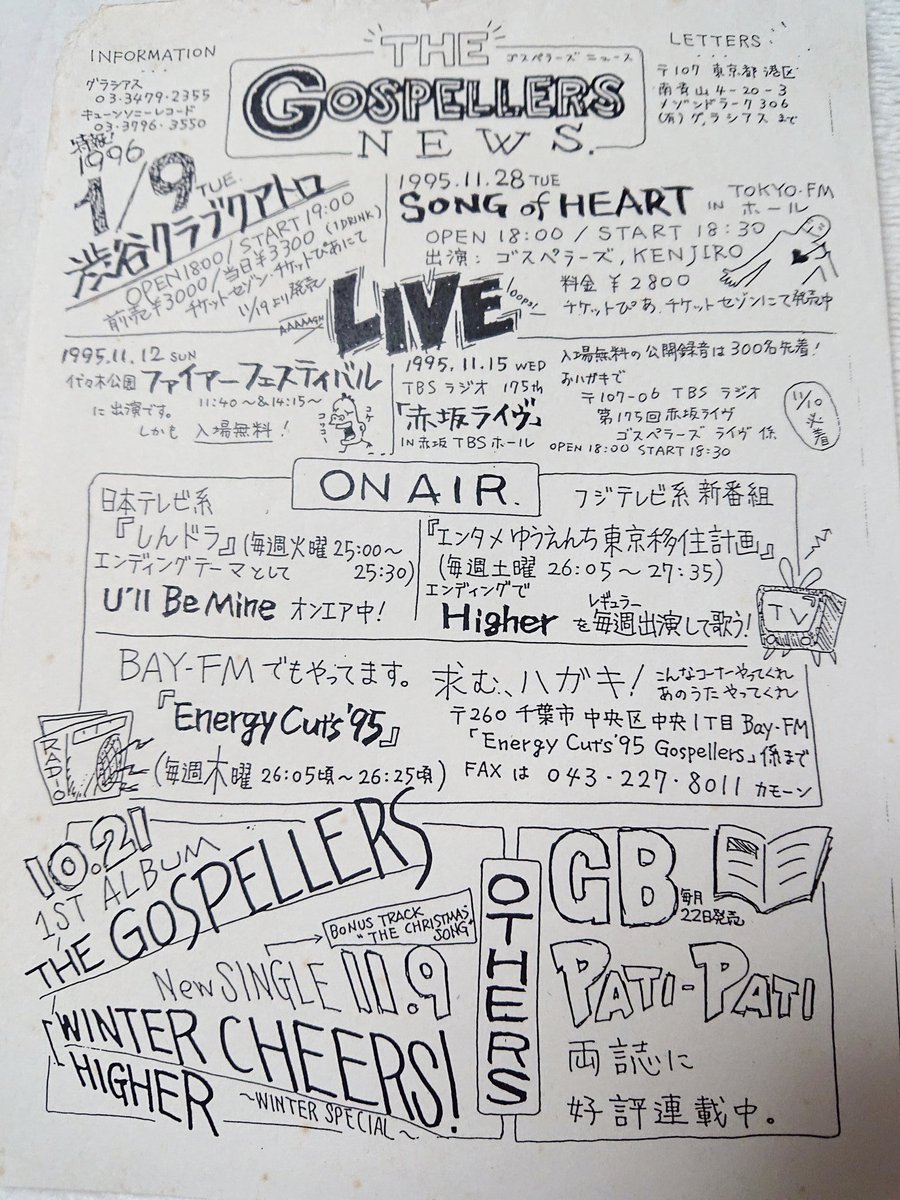 INFORMATION
グラシアス
03・3479・2355
キューンソニーレコード
03・3796・3550
THE
ゴスペラーズ ニュース
GOSPELLERS
NEWS.
LETTERS
〒107 東京都港区
南青山4-20-3
メゾンドラーク306
(有)グラシアスまで
特報!
1996
1/9 TUE.
渋谷クラブクアトロ
OPEN1800/START 19:00
前売¥3000/当日¥3300 (1DRINK)
チケットセゾン チケットぴあにて
11/19より発売
1995.11.28 TUE
SONG of HEART IN TOKYO・FM ホール
OPEN 18:00 / START 18:30
出演: ゴスペラーズ, KENJIRO
料金 ¥2800
チケットぴあ、チケットセゾンにて発売中
AAAAAGH
LIVE
oops!
1995.11.12 SUN
代々木公園 ファイアーフェスティバル
11:40〜&14:15〜
に出演です。
しかも 入場無料!
1995.11.15 WED
TBSラジオ 175th
「赤坂ライヴ」
IN 赤坂TBSホール
入場無料の公開録音は300名先着!
おハガキで
〒107-06 TBSラジオ
第175回赤坂ライヴ
ゴスペラーズ ライヴ 係
OPEN 18:00 START 18:30
11/10必着
ON AIR.
日本テレビ系
『しんドラ』(毎週火曜25:00〜
25:30)
エンディングテーマとして
U'll Be Mine オンエア中!
フジテレビ系 新番組
『エンタメゆうえんち東京移住計画』
(毎週土曜 26:05〜27:35)
エンディングで
Higher を毎週出演して歌う!
レギュラー
TV
BAY-FMでもやってます。
『Energy Cuts'95』
(毎週木曜26:05頃〜26:25頃)
RADIO
求む、ハガキ!
こんなコーナーやってくれ
あのうた やってくれ
〒260 千葉市 中央区中央1丁目 Bay-FM
「Energy Cuts'95 Gospellers」係まで
FAXは 043・227・8011 カモーン
10.21
1ST ALBUM
THE GOSPELLERS
BONUS TRACK
"THE CHRISTMAS SONG"
New SINGLE 11.9
WINTER CHEERS!
〜WINTER SPECIAL〜
HIGHER
OTHERS
GB
毎月
22日発売
PATI-PATI
両誌に
好評連載中。